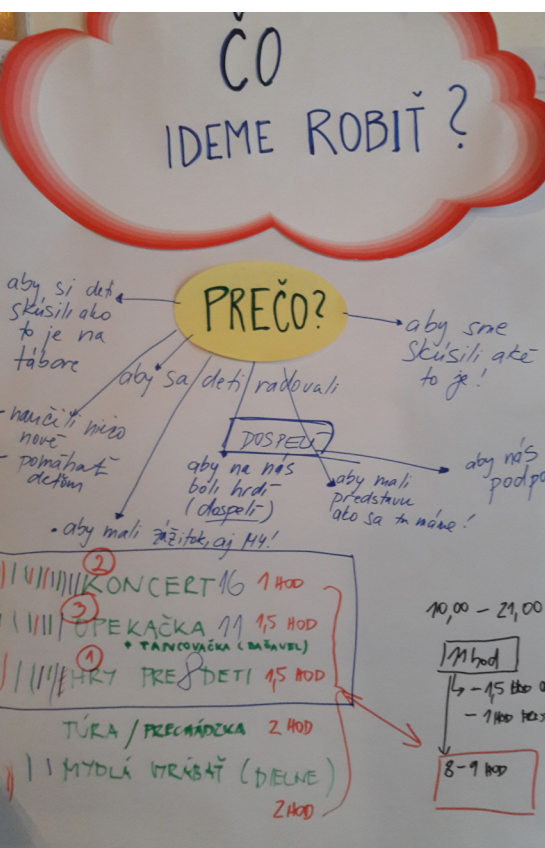 ČO
IDEME ROBIŤ?
PREČO?
aby si deti
skúsili ako
to je na
tábore
aby sme
skúsili aké
to je!
aby sa deti radovali
- naučili niečo
nové
- pomáhať
deťom
DOSPELÍ
aby na nás
boli hrdí
(dospelí)
aby mali
predstavu
ako sa tu máme!
aby nás
podpo
• aby mali zážitok, aj MY!
2
KONCERT 16 1 HOD
3
OPEKAČKA 11 1,5 HOD
+ TANCOVAČKA (BAŽAVEL)
1
HRY PRE 8 DETI 1,5 HOD
TÚRA / PRECHÁDZKA 2 HOD
MYDLÁ VYRÁBAŤ (DIELNE)
2 HOD
10,00 - 21,00
11 hod
- 1,5 HOD
- 1 HOD
8 - 9 HOD